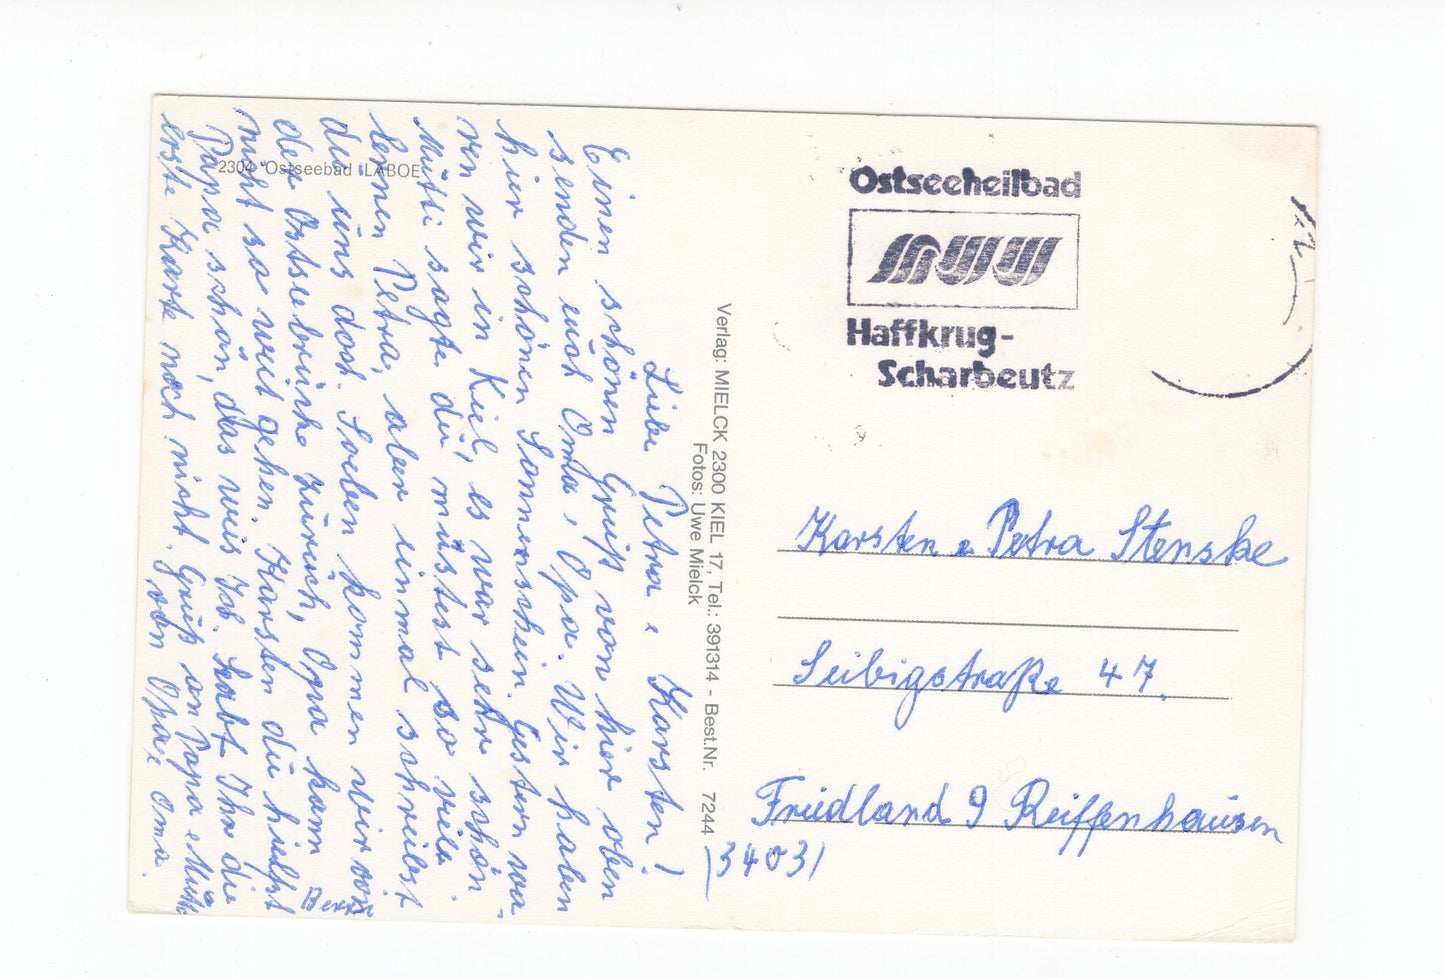 2304 Ostseebad LABOE
Liebe Petra, Karsten!
Einen schönen Gruß von hier oben
senden euch Oma, Opa. Wir haben
hier schönen Sonnenschein. Gestern wa-
ren wir in Kiel, es war sehr schön
Mutti sagte du müstest so viel
lernen Petra, aber einmal schreibst
du uns doch. Soeben kommen wir von
der Ostseebrücke zurück, Opa kann
nicht so weit gehen. Karsten du hielst
Papa schon, das weis Ich. Habt Ihr die
erste Karte noch nicht. Gruß an Papa, Mutti
von Opa, Oma.
Verlag: MIELCK 2300 KIEL 17, Tel.: 391314 - Best.Nr. 7244
Fotos: Uwe Mielck
Ostseeheilbad
Haffkrug-
Scharbeutz
Karsten Petra Stenske
Leibigstraße 47.
Friedland 9 Reiffenhausen
34031